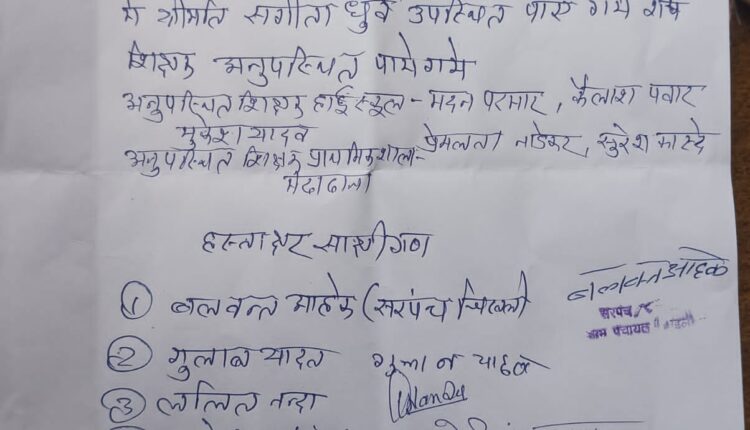 में श्रीमति संगीता धुर्वे उपस्थित पाए गये शेष
शिक्षक अनुपस्थित पाये गये
अनुपस्थित शिक्षक हाईस्कूल - मदन परमार, कैलाश पवार
मुकेश यादव
अनुपस्थित शिक्षक प्राथमिक शाला - प्रेमलता नाडेकर, सुरेश
मेंढाढाना
हस्ताक्षर साक्षीगण
① बलवन्त आहके (सरपंच चिखली)
बलवन्त आहके
सरपंच
ग्राम पंचायत
② गुलाब यादव गुलाब यादव
③ ललित नन्दा